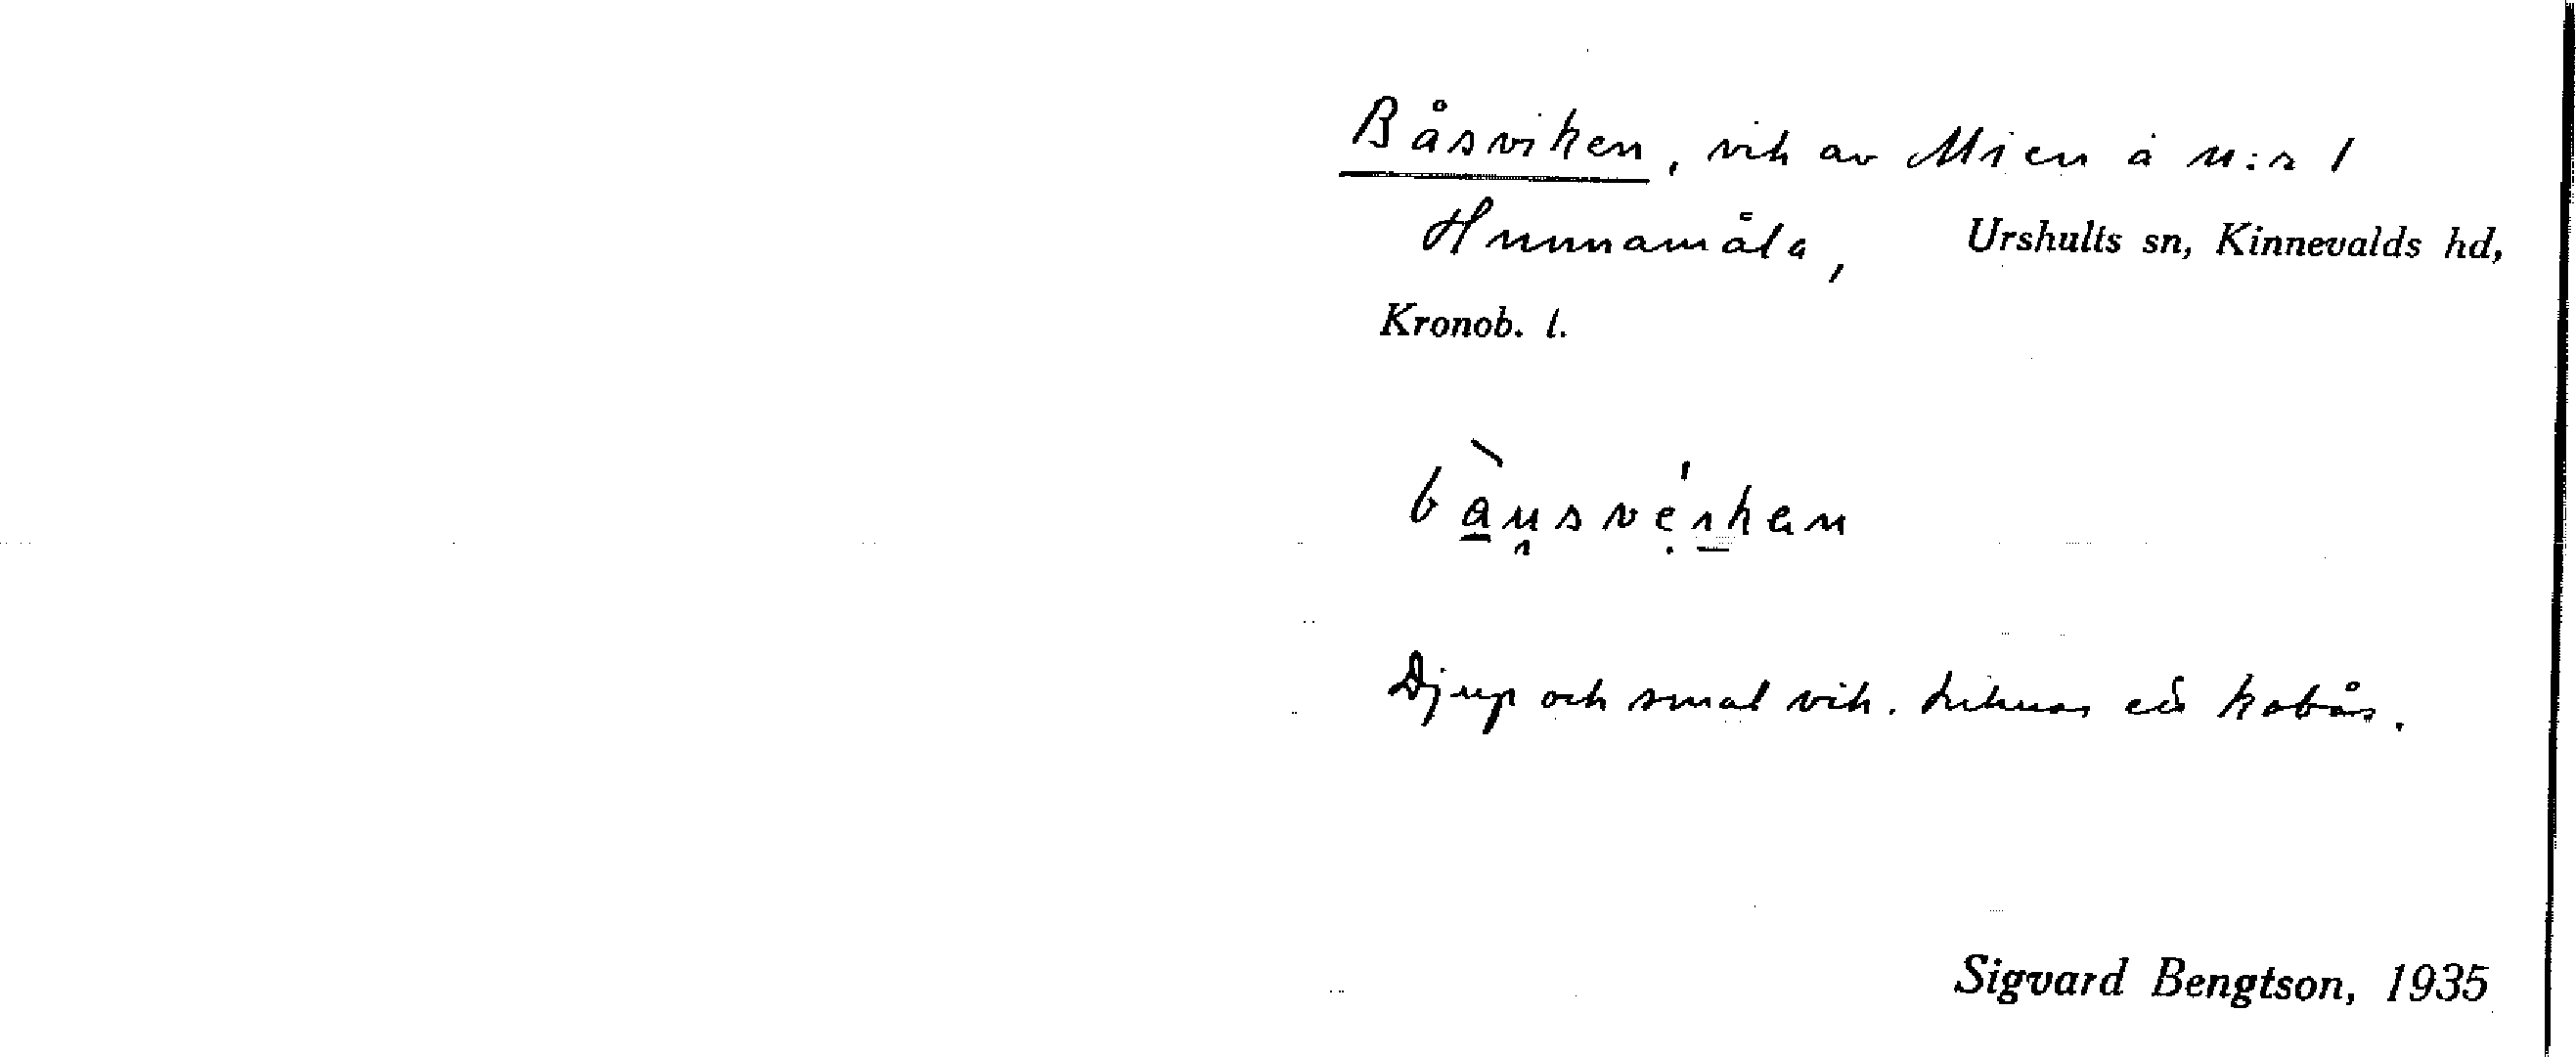 Båsviken, vik av Mien å n:r 1
Hunnamåla, Urshults sn, Kinnevalds hd,
Kronob. l.
Djup och smal vik. Liknar ett kobås.
Sigvard Bengtson, 1935